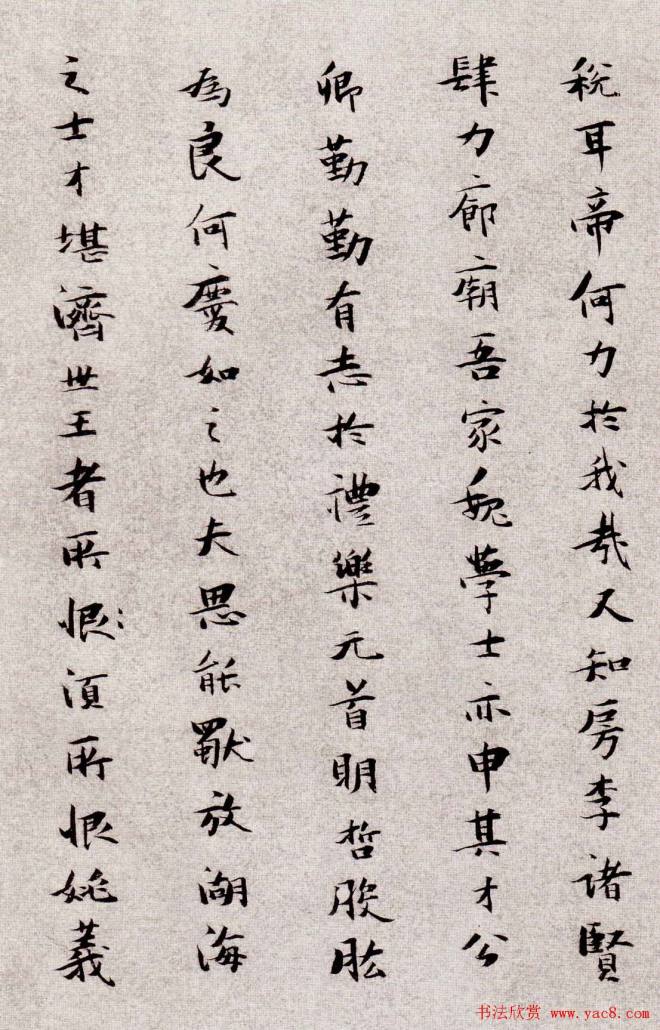 稅耳帝何力於我哉又知房李諸賢
肆力廊廟吾家魏學士亦申其才公
卿勤勤有志於禮樂元首明哲股肱
為良何慶如之也夫思能獸放湖海
之士才堪濟世王者所恨須所恨姚義
书法欣赏 www.yac8.com